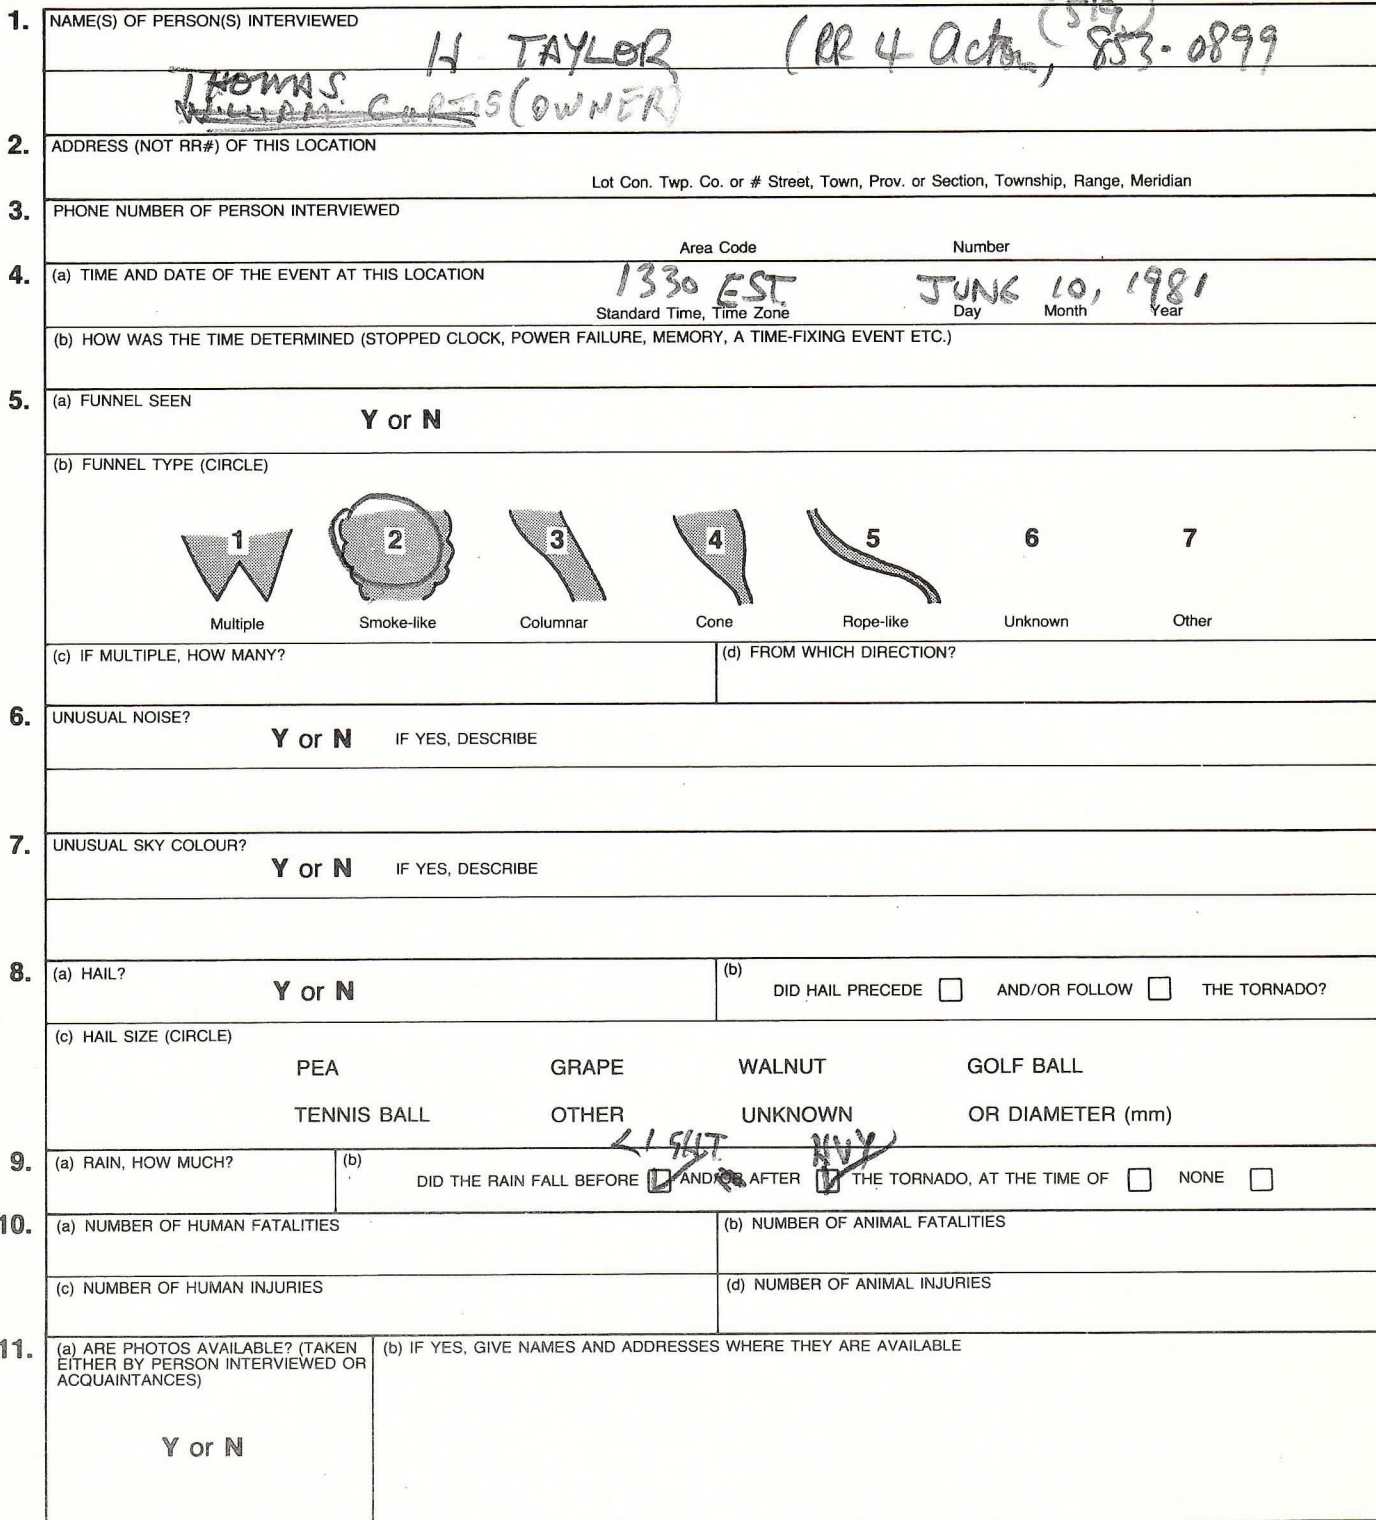 1. NAME(S) OF PERSON(S) INTERVIEWED
H TAYLOR (RR 4 Acton, (519) 853-0899
THOMAS
WILLIAM CURTIS (OWNER)
2. ADDRESS (NOT RR#) OF THIS LOCATION
Lot Con. Twp. Co. or # Street, Town, Prov. or Section, Township, Range, Meridian
3. PHONE NUMBER OF PERSON INTERVIEWED
Area Code Number
4. (a) TIME AND DATE OF THE EVENT AT THIS LOCATION 1330 EST JUNE 10, 1981
Standard Time, Time Zone Day Month Year
(b) HOW WAS THE TIME DETERMINED (STOPPED CLOCK, POWER FAILURE, MEMORY, A TIME-FIXING EVENT ETC.)
5. (a) FUNNEL SEEN
Y or N
(b) FUNNEL TYPE (CIRCLE)
1 2 3 4 5 6 7
Multiple Smoke-like Columnar Cone Rope-like Unknown Other
(c) IF MULTIPLE, HOW MANY? (d) FROM WHICH DIRECTION?
6. UNUSUAL NOISE?
Y or N IF YES, DESCRIBE
7. UNUSUAL SKY COLOUR?
Y or N IF YES, DESCRIBE
8. (a) HAIL? Y or N (b) DID HAIL PRECEDE AND/OR FOLLOW THE TORNADO?
(c) HAIL SIZE (CIRCLE)
PEA GRAPE WALNUT GOLF BALL
TENNIS BALL OTHER UNKNOWN OR DIAMETER (mm)
LIGHT HVY
9. (a) RAIN, HOW MUCH? (b) DID THE RAIN FALL BEFORE AND/OR AFTER THE TORNADO, AT THE TIME OF NONE
10. (a) NUMBER OF HUMAN FATALITIES (b) NUMBER OF ANIMAL FATALITIES
(c) NUMBER OF HUMAN INJURIES (d) NUMBER OF ANIMAL INJURIES
11. (a) ARE PHOTOS AVAILABLE? (TAKEN (b) IF YES, GIVE NAMES AND ADDRESSES WHERE THEY ARE AVAILABLE
EITHER BY PERSON INTERVIEWED OR
ACQUAINTANCES)
Y or N